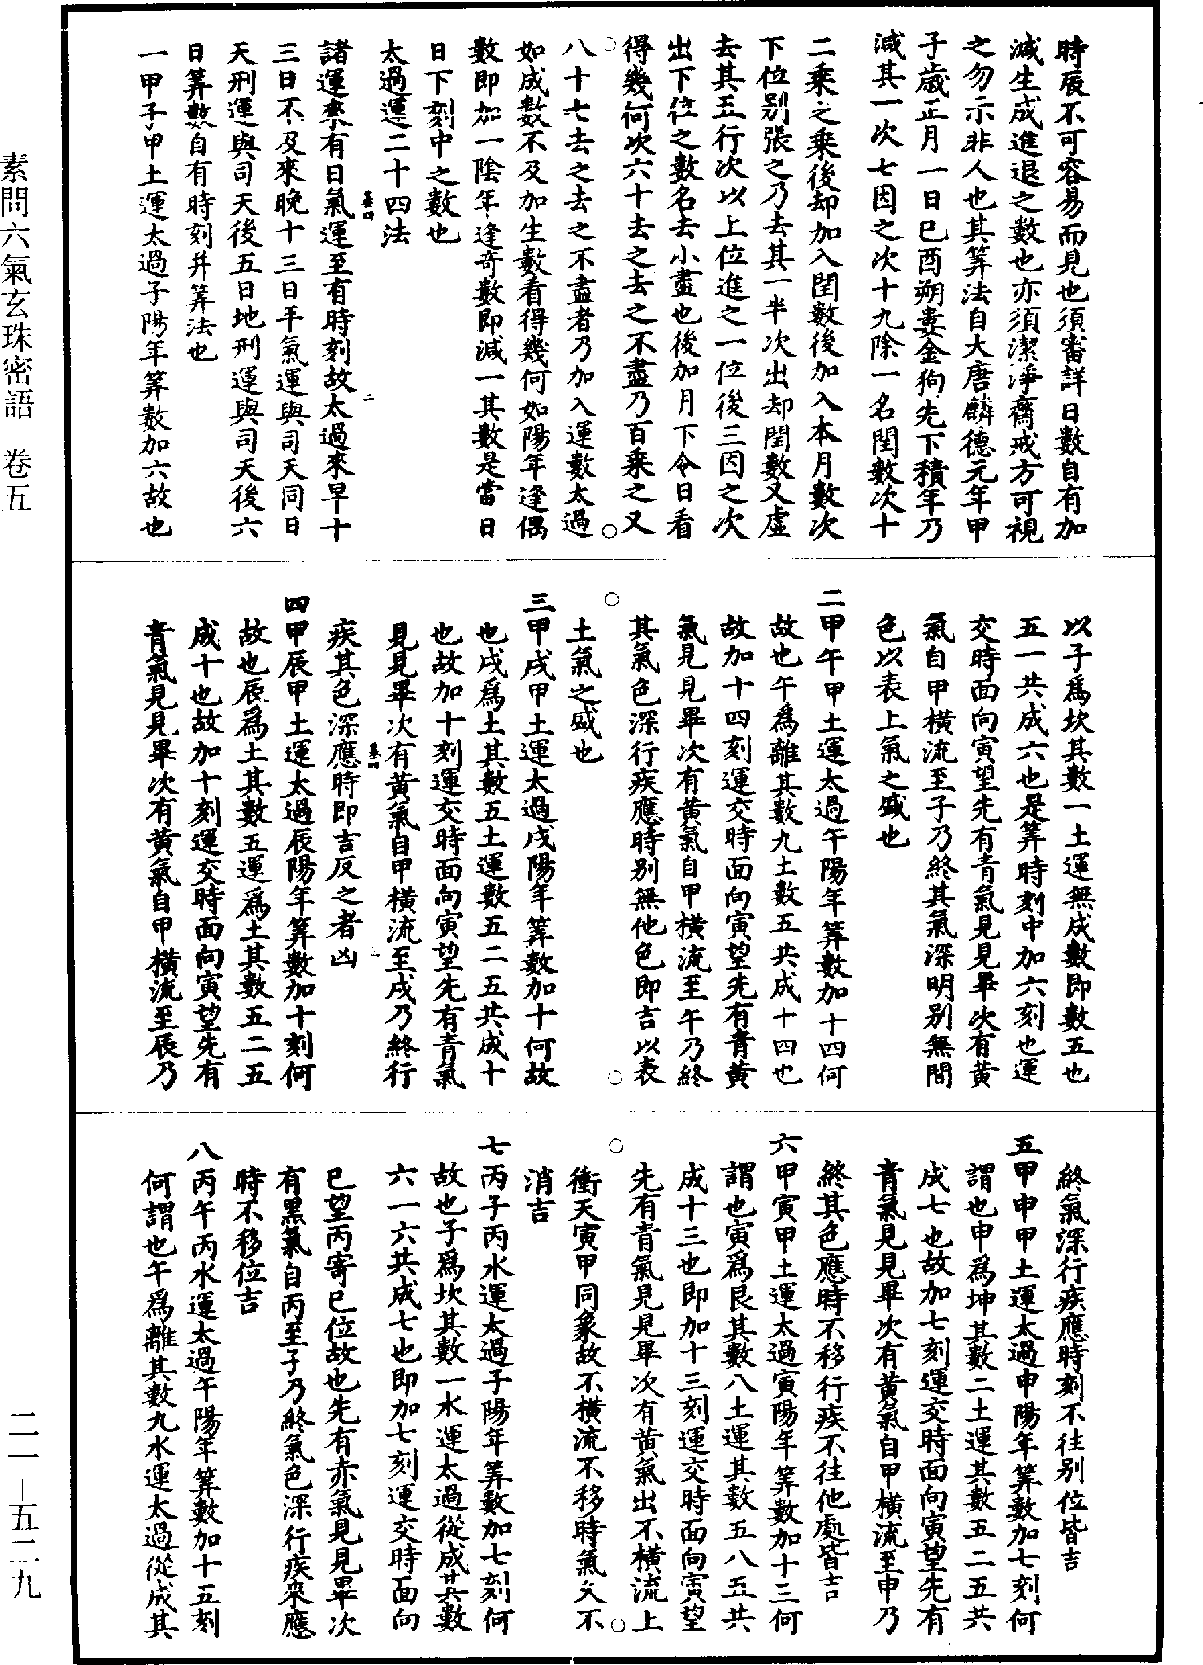 時辰不可容易而見也須審詳日數自有加
減生成進退之數也亦須潔淨齋戒方可視
之勿示非人也其筭法自大唐麟德元年甲
子歲正月一日巳酉朔婁金狗先下積年乃
減其一次七因之次十九除一名閏數次十
二乘之乘後却加入閏數後加入本月數次
下位別張之乃去其一半次出却閏數又虛
去其五行次以上位進之一位後三因之次
出下位之數名去小盡也後加月下令日看
得幾何次六十去之去之不盡乃百乘之又
八十七去之去之不盡者乃加入運數太過
如成數不及加生數看得幾何如陽年逢偶
數即加一陰年逢奇數即減一其數是當日
日下刻中之數也
太過運二十四法
諸運來有日氣運至有時刻故太過來早十
三日不及來晚十三日平氣運與司天同日
天刑運與司天後五日地刑運與司天後六
日筭數自有時刻并筭法也
一甲子甲土運太過子陽年筭數加六故也
以子爲坎其數一土運無成數即數五也
五一共成六也是筭時刻中加六刻也運
交時面向寅望先有青氣見見畢次有黃
氣自甲橫流至子乃終其氣深明別無間
色以表上氣之盛也
二甲午甲土運太過午陽年筭數加十四何
故也午爲離其數九土數五共成十四也
故加十四刻運交時面向寅望先有青黃
氣見見畢次有黃氣自甲橫流至午乃終
其氣色深行疾應時別無他色即吉以表
土氣之盛也
三甲戌甲土運太過戌陽年筭數加十何故
也戌爲土其數五土運數五二五共成十
也故加十刻運交時面向寅望先有青氣
見見畢次有黃氣自甲橫流至戌乃終行
疾其色深應時即吉反之者凶
四甲辰甲土運太過辰陽年筭數加十刻何
故也辰爲土其數五運爲土其數五二五
成十也故加十刻運交時面向寅望先有
青氣見見畢次有黃氣自甲橫流至辰乃
終氣深行疾應時刻不往別位皆吉
五甲申甲土運太過申陽年筭數加七刻何
謂也申爲坤其數二土運其數五二五共
成七也故加七刻運交時面向寅望先有
青氣見見畢次有黃氣自甲橫流至申乃
終其色應時不移行疾不往他處皆吉
六甲寅甲土運太過寅陽年筭數加十三何
謂也寅爲艮其數八土運其數五八五共
成十三也即加十三刻運交時面向寅望
先有青氣見見畢次有黃氣出不橫流上
衝天寅甲同象故不橫流不移時氣久不
消吉
七丙子丙水運太過子陽年筭數加七刻何
故也子爲坎其數一水運太過從成其數
六一六共成七也即加七刻運交時面向
巳望丙寄巳位故也先有赤氣見見畢次
有黑氣自丙至子乃終氣色深行疾來應
時不移位吉
八丙午丙水運太過午陽年筭數加十五刻
何謂也午爲離其數九水運太過從成其
素問六氣玄珠密語 卷五
二一—五二九